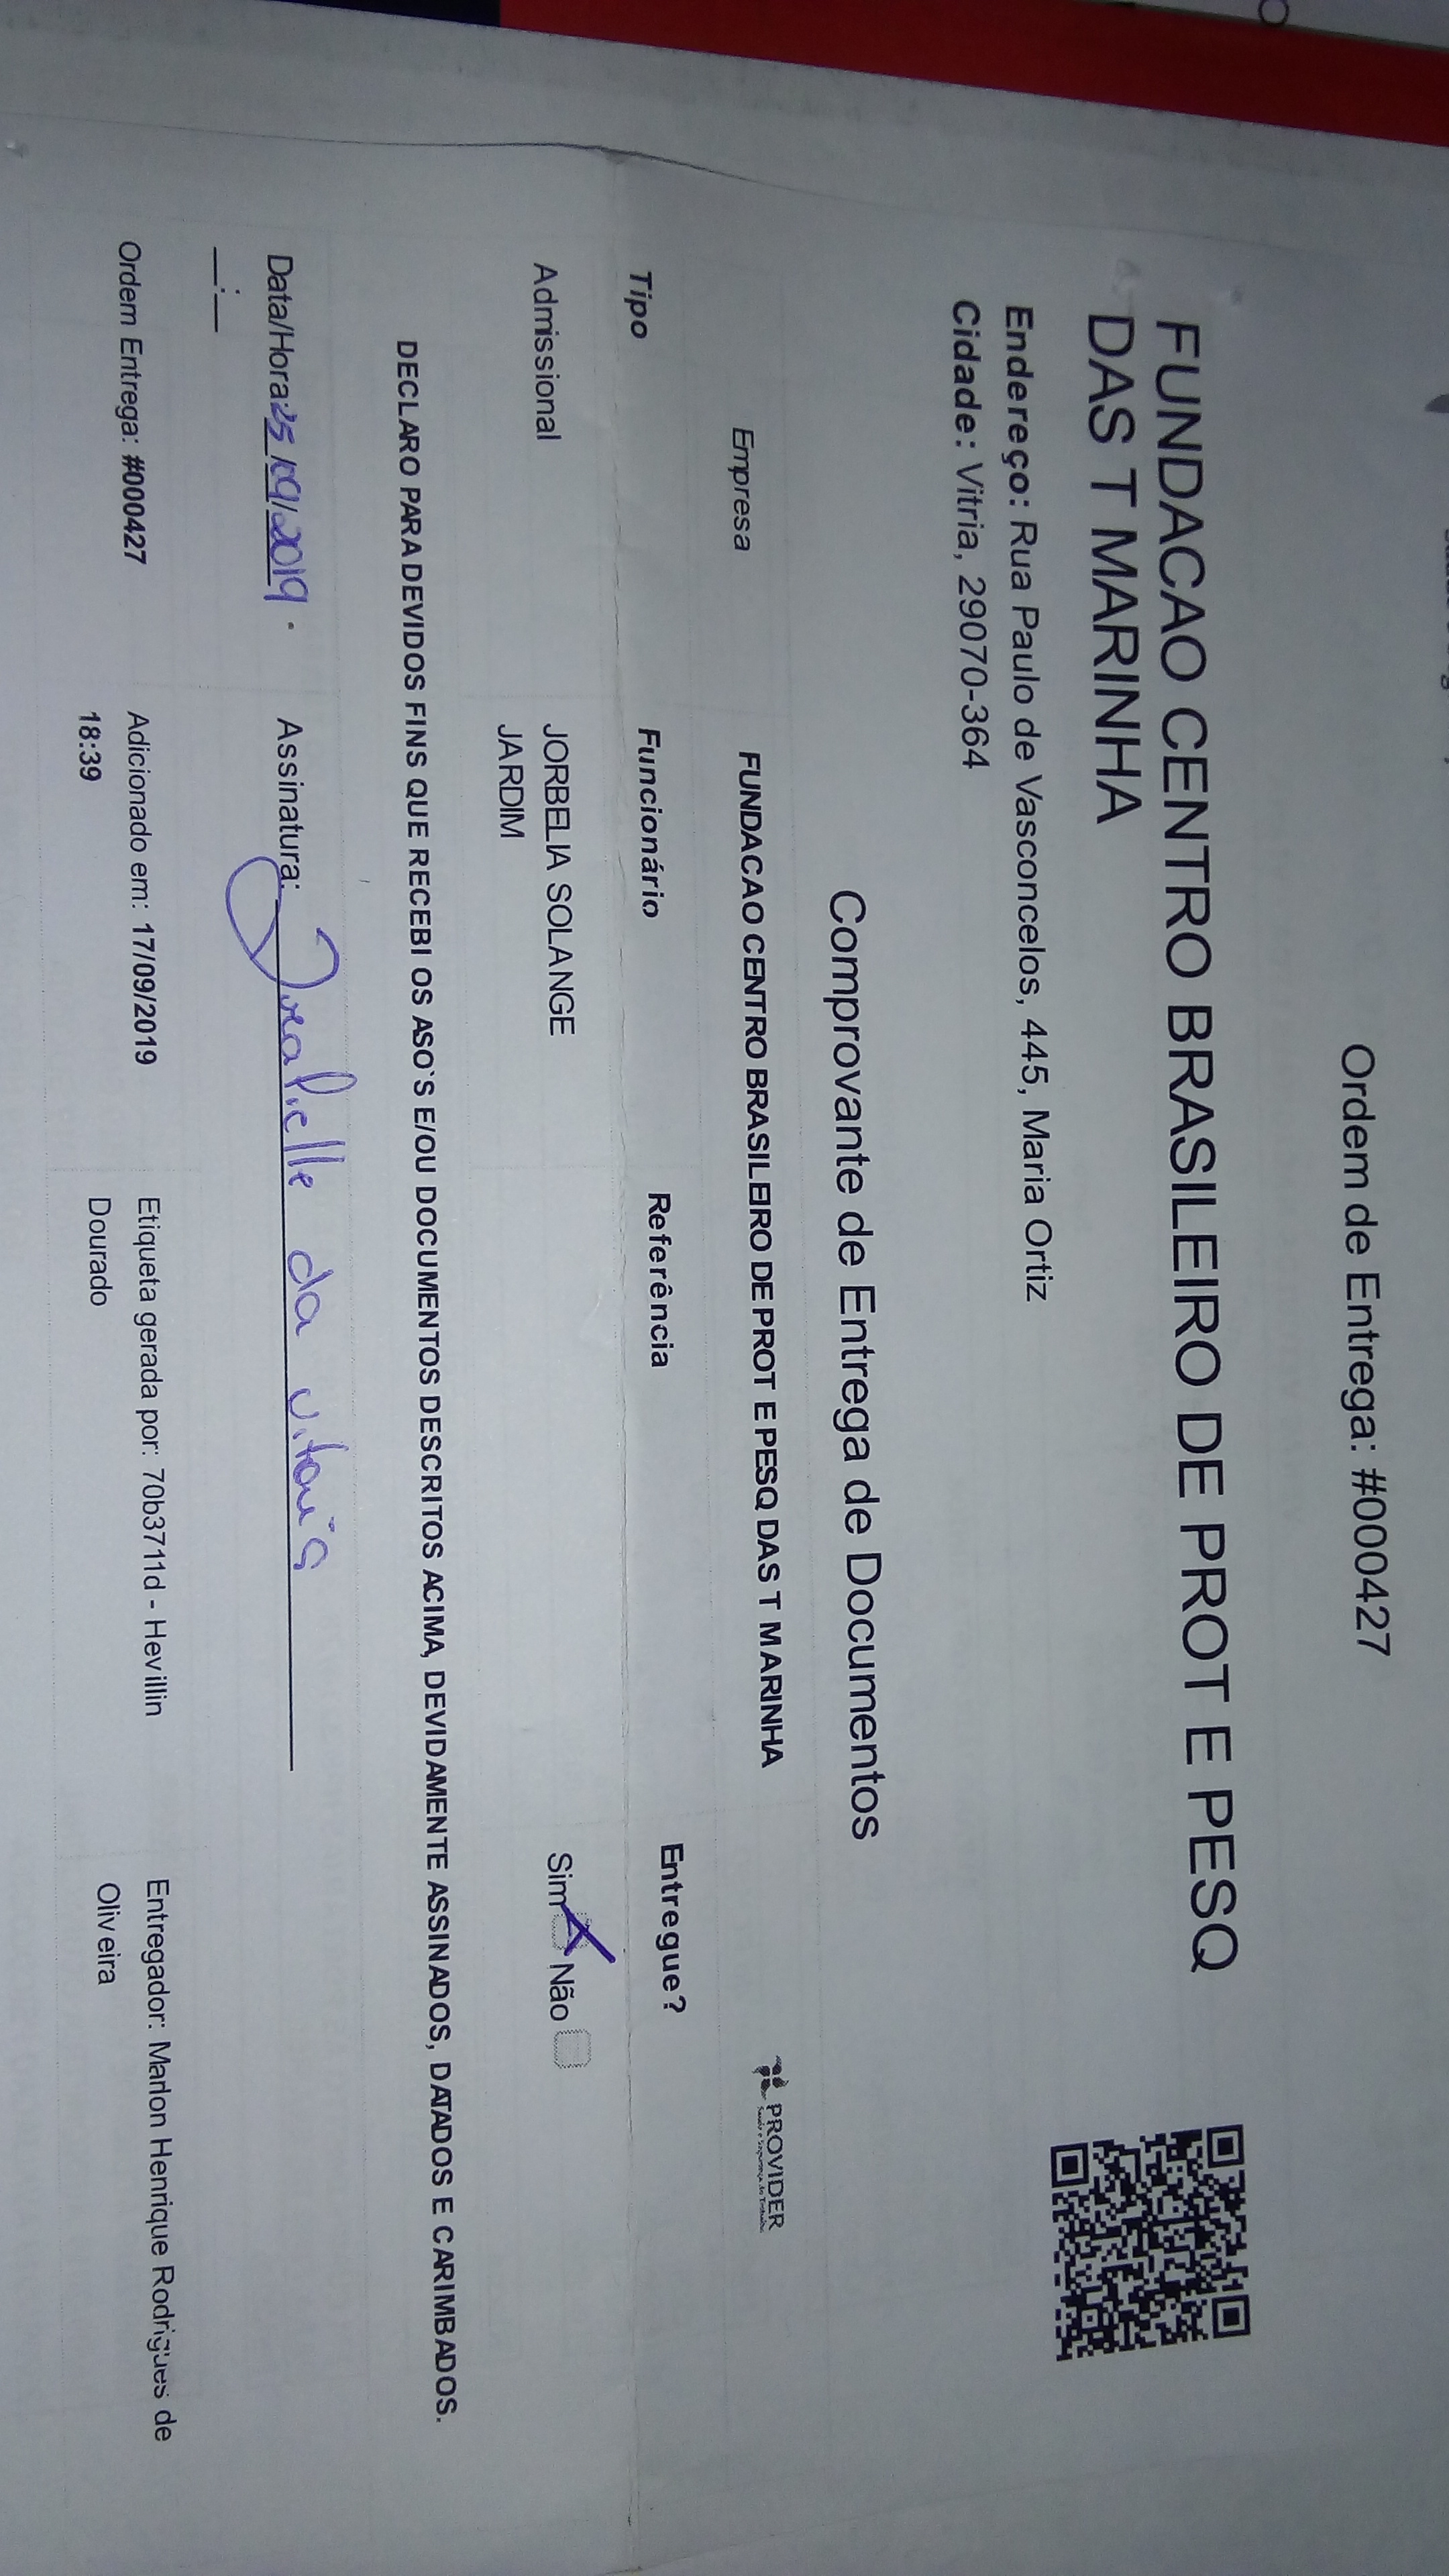 Ordem de Entrega: #000427
FUNDACAO CENTRO BRASILEIRO DE PROT E PESQ
DAS T MARINHA
Endereço: Rua Paulo de Vasconcelos, 445, Maria Ortiz
Cidade: Vitria, 29070-364
Comprovante de Entrega de Documentos
Empresa FUNDACAO CENTRO BRASILEIRO DE PROT E PESQ DAS T MARINHA PROVIDER
Tipo Funcionário Referência Entregue?
Admissional JORBELIA SOLANGE Sim Não
JARDIM
DECLARO PARA DEVIDOS FINS QUE RECEBI OS ASO`S E/OU DOCUMENTOS DESCRITOS ACIMA, DEVIDAMENTE ASSINADOS, DATADOS E CARIMBADOS.
Data/Hora: 25/09/2019 Assinatura: da
__:__
Ordem Entrega: #000427 Adicionado em: 17/09/2019 Etiqueta gerada por: 70b3711d - Hevillin Entregador: Marlon Henrique Rodrigues de
18:39 Dourado Oliveira